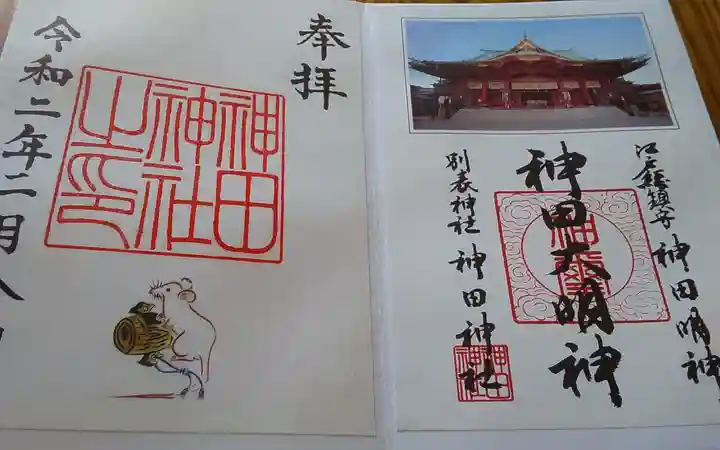 奉拝
神田
神社
之印
令和二年二月八日
江戸総鎮守 神田明神
神田大明神
別表神社 神田神社
神田
神社